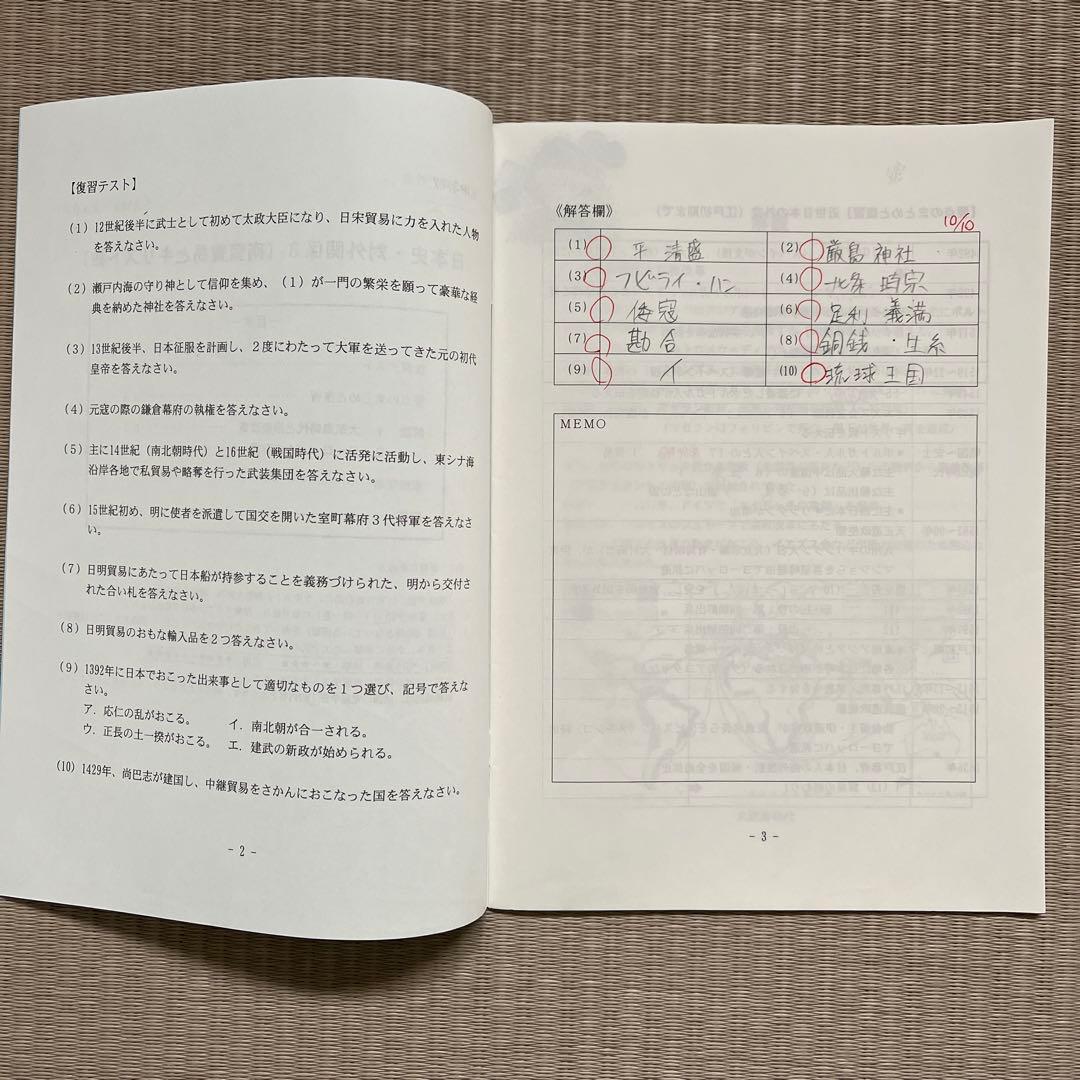 【復習テスト】
(1) 12世紀後半に武士として初めて太政大臣になり、日宋貿易に力を入れた人物
を答えなさい。
(2) 瀬戸内海の守り神として信仰を集め、(1)が一門の繁栄を願って豪華な経
典を納めた神社を答えなさい。
(3) 13世紀後半、日本征服を計画し、２度にわたって大軍を送ってきた元の初代
皇帝を答えなさい。
(4) 元寇の際の鎌倉幕府の執権を答えなさい。
(5) 主に14世紀（南北朝時代）と16世紀（戦国時代）に活発に活動し、東シナ海
沿岸各地で私貿易や略奪を行った武装集団を答えなさい。
(6) 15世紀初め、明に使者を派遣して国交を開いた室町幕府３代将軍を答えなさ
い。
(7) 日明貿易にあたって日本船が持参することを義務づけられた、明から交付さ
れた合い札を答えなさい。
(8) 日明貿易のおもな輸入品を２つ答えなさい。
(9) 1392年に日本でおこった出来事として適切なものを１つ選び、記号で答えな
さい。
ア．応仁の乱がおこる。 イ．南北朝が合一される。
ウ．正長の土一揆がおこる。 エ．建武の新政が始められる。
(10) 1429年、尚巴志が建国し、中継貿易をさかんにおこなった国を答えなさい。
- 2 -
《解答欄》
10/10
(1) 平 清盛 (2) 厳島神社
(3) フビライ・ハン (4) 北条 時宗
(5) 倭寇 (6) 足利 義満
(7) 勘合 (8) 銅銭・生糸
(9) イ (10) 琉球王国
MEMO
- 3 -